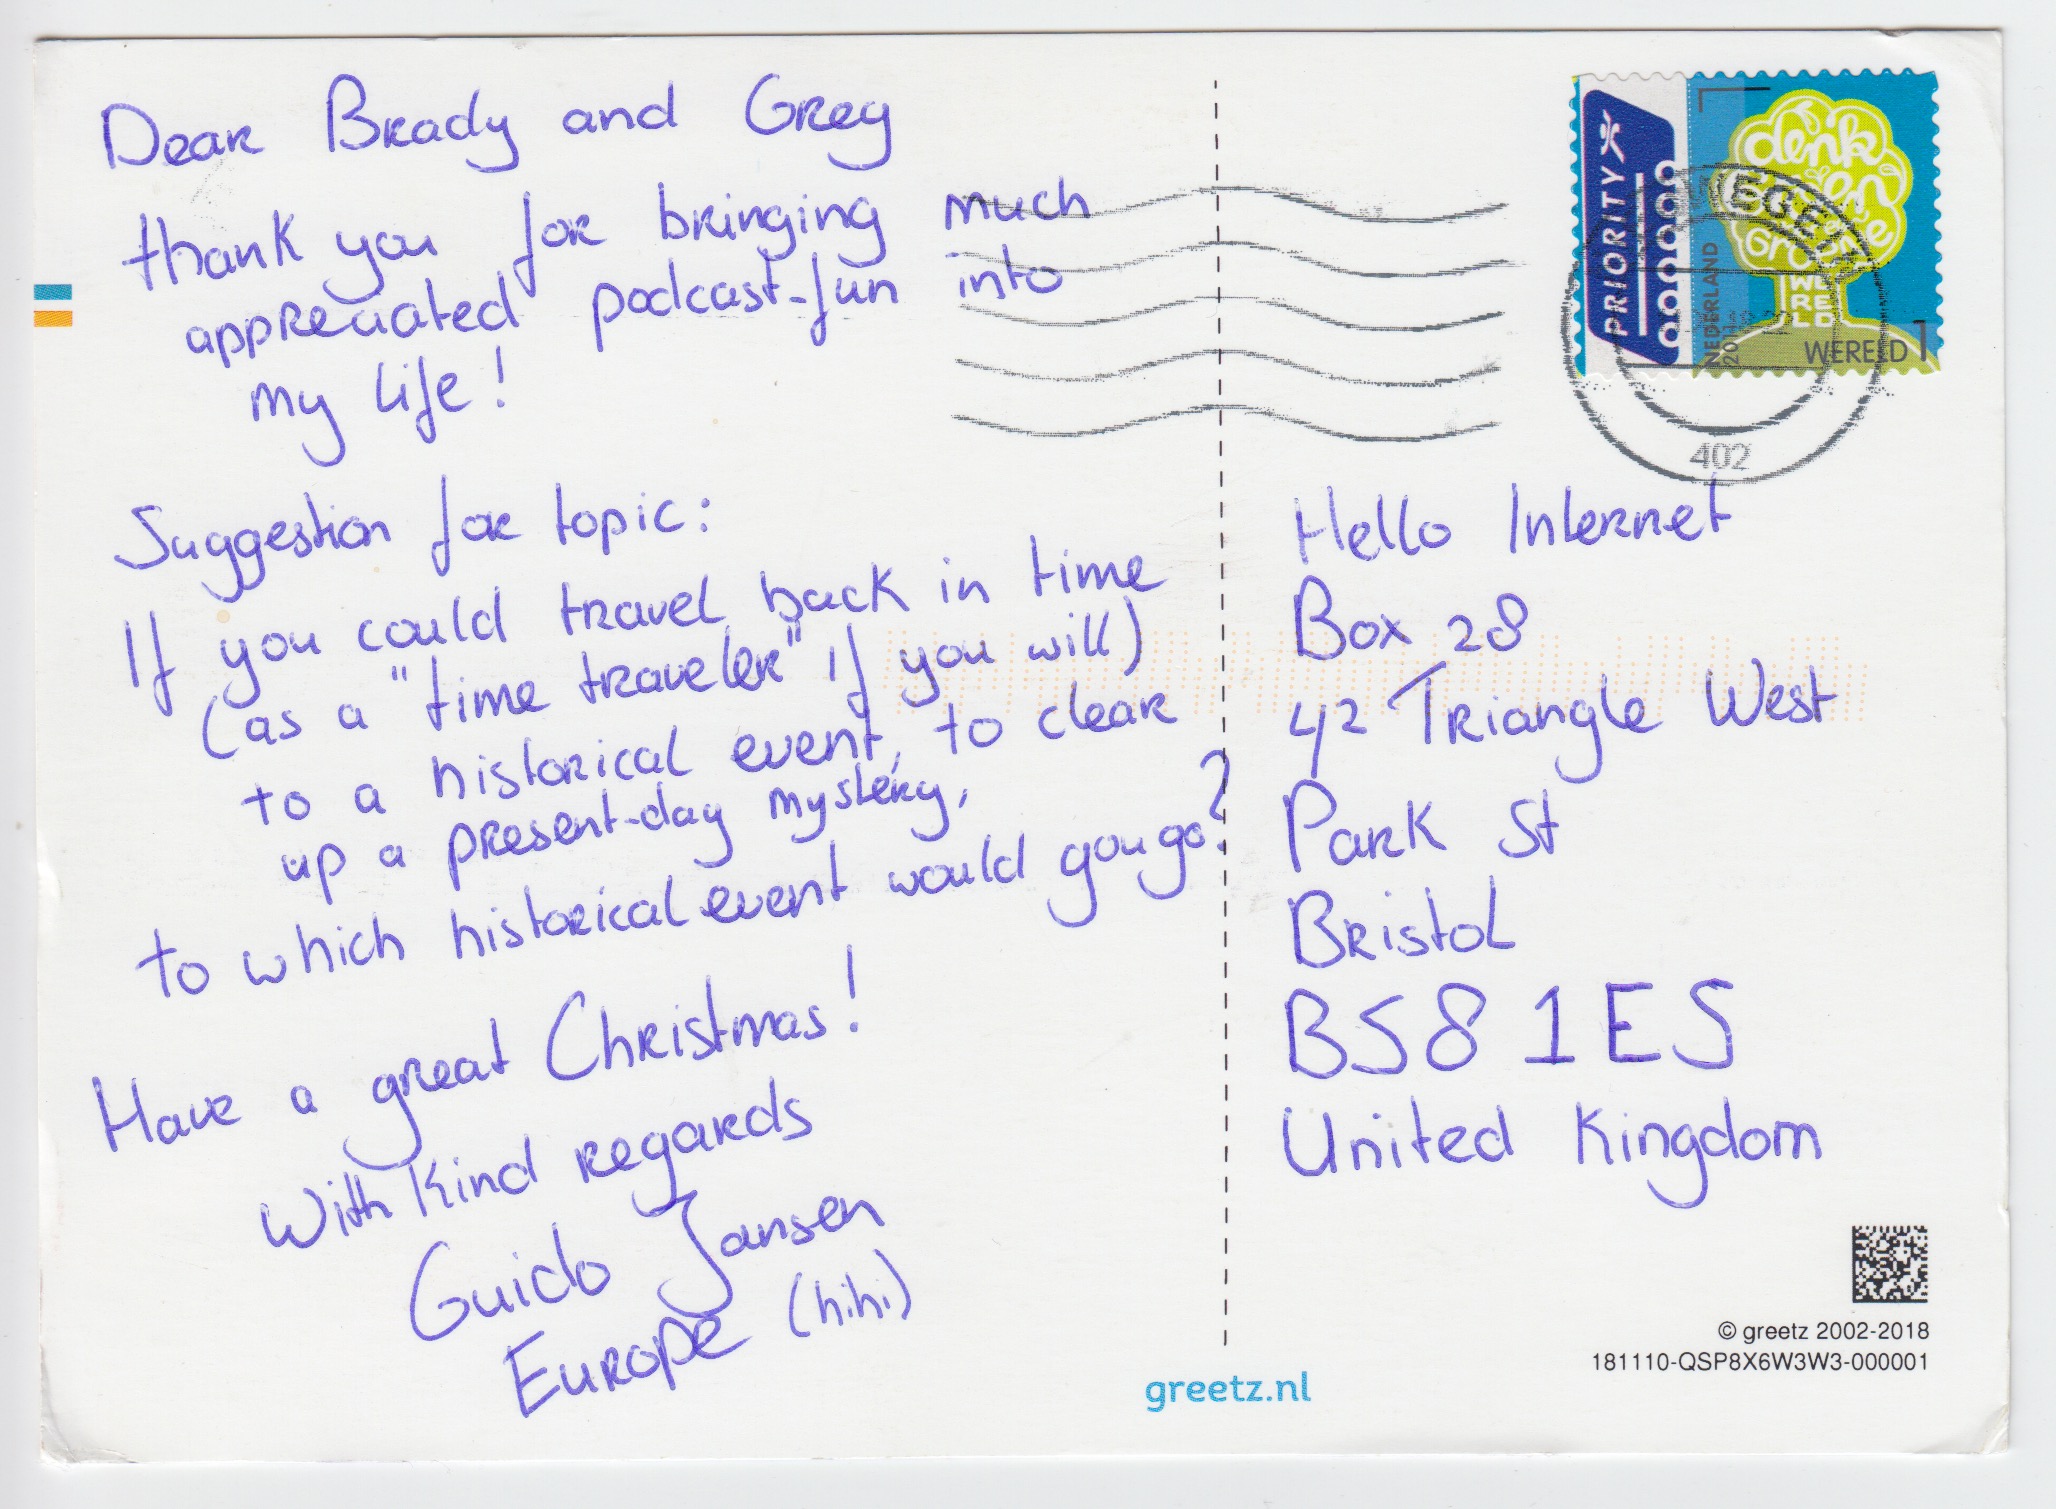 Dear Brady and Grey
thank you for bringing much
appreciated podcast-fun into
my life!
Suggestion for topic:
If you could travel back in time
(as a "time traveler" if you will)
to a historical event, to clear
up a present-day mystery,
to which historical event would you go?
Have a great Christmas!
With kind regards
Guido Jansen
Europe (hihi)
PRIORITY
denk
Groene
WE
RE
LD
NEDERLAND
WERELD 1
402
Hello Internet
Box 28
42 Triangle West
Park St
Bristol
BS8 1ES
United Kingdom
© greetz 2002-2018
181110-QSP8X6W3W3-000001
greetz.nl